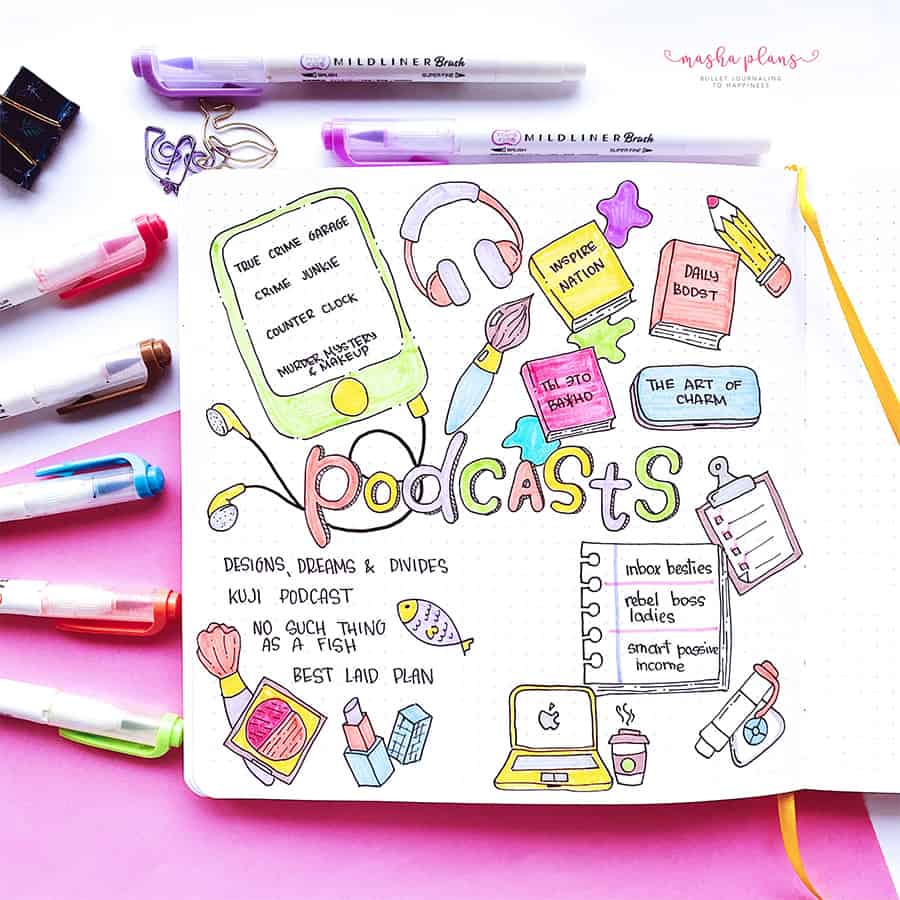 MILDLINER Brush
BRUSH SUPER FINE
masha plans
BULLET JOURNALING
TO HAPPINESS
MILDLINER Brush
BRUSH SUPER FINE
TRUE CRIME GARAGE
CRIME JUNKIE
COUNTER CLOCK
MURDER MYSTERY
& MAKEUP
INSPIRE
NATION
DAILY
BOOST
ТЫ ЭТО
ВАЖНО
THE ART OF
CHARM
PodCASTS
DESIGNS, DREAMS & DIVIDES
KUJI PODCAST
NO SUCH THING
AS A FISH
BEST LAID PLAN
inbox besties
rebel boss
ladies
smart passive
income